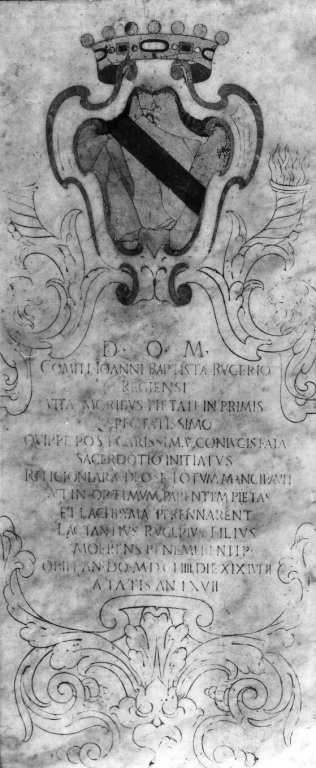 D · O · M ·
COMITI IOANNI BAPTISTA RVGERIO
REGIENSI
VITA MORIBVS PIETATE IN PRIMIS
SPECTATISSIMO
QVIPPE POST CARISSIMÆ CONIVGIS FATA
SACERDOTIO INITIATVS
RELIGIONI ARÆ DEO SE TOTVM MANCIPAVIT
VT IN OPTIMVM PARENTEM PIETAS
ET LACHRIMÆ PERENNARENT
LACTANTIVS RVGERIVS FILIVS
MOERENS BENEMERENTI P·
OBIIT AN DO M·D·C·
ÆTATIS AN LXVII